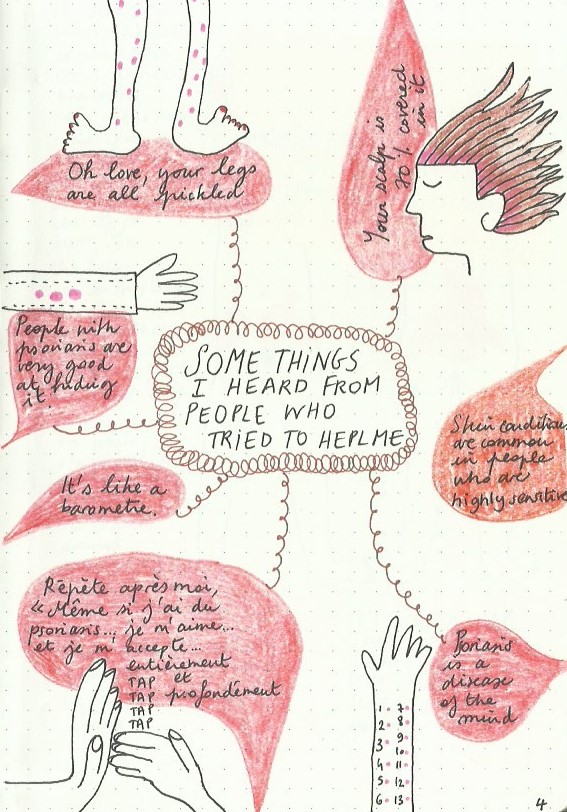 Oh love, your legs
are all prickled
Your scalp is
70% covered
in it
People with
psoriasis are
very good
at hiding
it.
SOME THINGS
I HEARD FROM
PEOPLE WHO
TRIED TO HEPL ME
Skin conditions
are common
in people
who are
highly sensitive
It's like a
barometre.
Répète après moi,
« Même si j'ai du
psoriasis... je m'aime...
et je m'accepte...
entièrement
TAP et
TAP profondément
TAP
TAP
Psoriasis
is a
disease
of the
mind
1 7
2 8
3 9
10
4 11
5 12
6 13
4